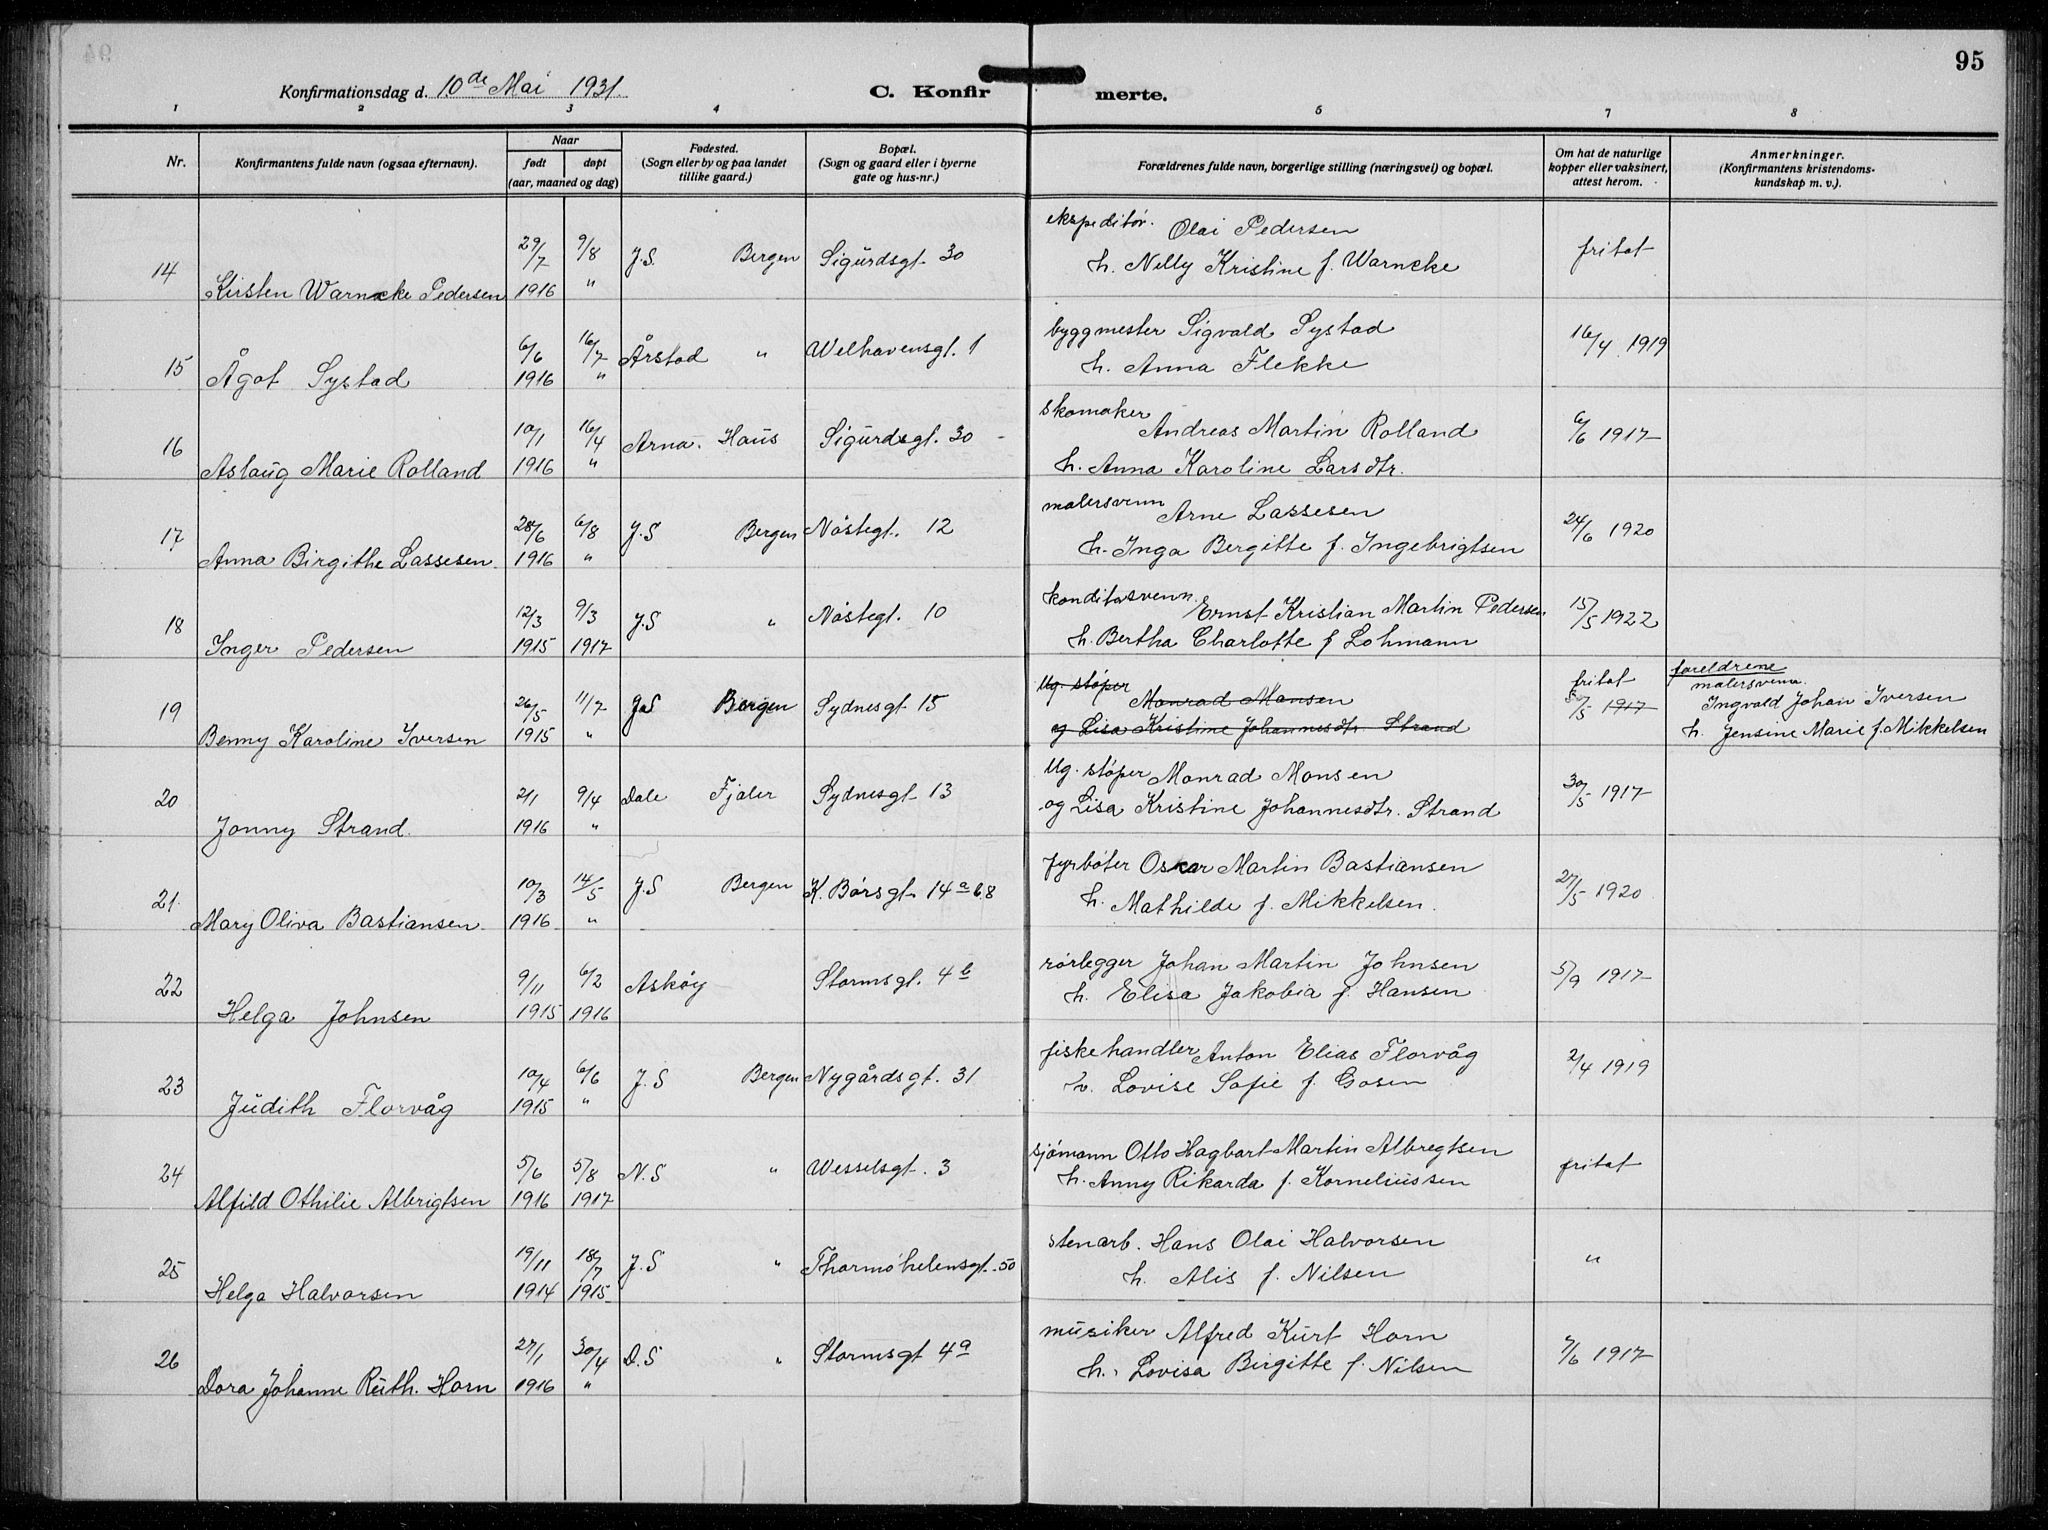 95
Konfirmationsdag d. 10de Mai 1931.
C. Konfir
merte.
1 2 3 4 5 6 7 8
Nr.
Konfirmantens fulde navn (ogsaa efternavn).
Naar
født døpt
(aar, maaned og dag)
Fødested.
(Sogn eller by og paa landet
tillike gaard.)
Bopæl.
(Sogn og gaard eller i byerne
gate og hus-nr.)
Forældrenes fulde navn, borgerlige stilling (næringsvei) og bopæl.
Om hat de naturlige
kopper eller vaksinert,
attest herom.
Anmerkninger.
(Konfirmantens kristendoms-
kundskap m. v.).
14 Kirsten Warncke Pedersen 29/7 1916 9/8 " J.S. Bergen Sigurdsgt. 30
ekspeditør. Olai Pedersen
h. Nelly Kristine f. Warncke
fritat
15 Ågot Systad 6/6 1916 16/7 " Årstad " Welhavensgt. 1
byggmester Sigvald Systad
h. Anna Flekke
16/4 1919
16 Aslaug Marie Rolland 10/1 1916 16/4 " Arna. Haus Sigurdsgt. 30
skomaker Andreas Martin Rolland
h. Anna Karoline Larsdtr.
6/6 1917
17 Anna Birgithe Lassesen 28/6 1916 6/8 " J.S Bergen Nøstegt. 12
malersvenn Arne Lassesen
h. Inga Bergitte f. Ingebrigtsen
24/6 1920
18 Inger Pedersen 12/3 1915 9/3 1917 J.S " Nøstegt. 10
konditorsvenn. Ernst Kristian Martin Pedersen
h. Bertha Charlotte f Lohmann
15/5 1922
19 Benny Karoline Iversen 26/5 1915 11/7 " J.S Bergen Sydnesgt 15
Ug. støper Monrad Monsen
og Lisa Kristine Johannesdtr. Strand
fritat
30/5 1917
foreldrene
malersvenn
Ingvald Johan Iversen
h. Jensine Marie f. Mikkelsen
20 Jonny Strand. 2/1 1916 9/4 " Dale Fjaler Sydnesgt 13
Ug. støper Monrad Monsen
og Lisa Kristine Johannesdtr. Strand
30/5 1917
21. Mary Oliva Bastiansen 10/3 1916 14/5 " J.S Bergen K. Børsgt 14a
fyrbøter Oskar Martin Bastiansen
h. Mathilde f. Mikkelsen.
27/5 1920
22 Helga Johnsen 9/11 1915 6/2 1916 Askøy Stormsgt. 4b
rørlegger Johan Martin Johnsen
h. Elisa Jakobia f. Hansen
5/9 1917
23 Judith Florvåg 10/4 1915 6/6 " J.S Bergen Nygårdsgt. 31
fiskehandler Anton Elias Florvåg
h. Lovise Sofie f. Gosen
2/4 1919
24 Alfild Othilie Albrigtsen 5/6 1916 5/8 1917 N.S " Wesselsgt. 3
sjømann Otto Hagbart Martin Albregtsen
h. Anny Rikarda f. Korneliussen
fritat
25 Helga Halvorsen 19/11 1914 18/7 1915 J.S " Thormøhelensgt. 50
stenarb. Hans Olai Halvorsen
h. Alis f. Nilsen
"
26 Dora Johanne Ruth. Horn 27/1 1916 30/4 " D.S " Stormsgt 4a
musiker Alfred Kurt Horn
h. Lovisa Birgitte f. Nilsen
7/6 1917